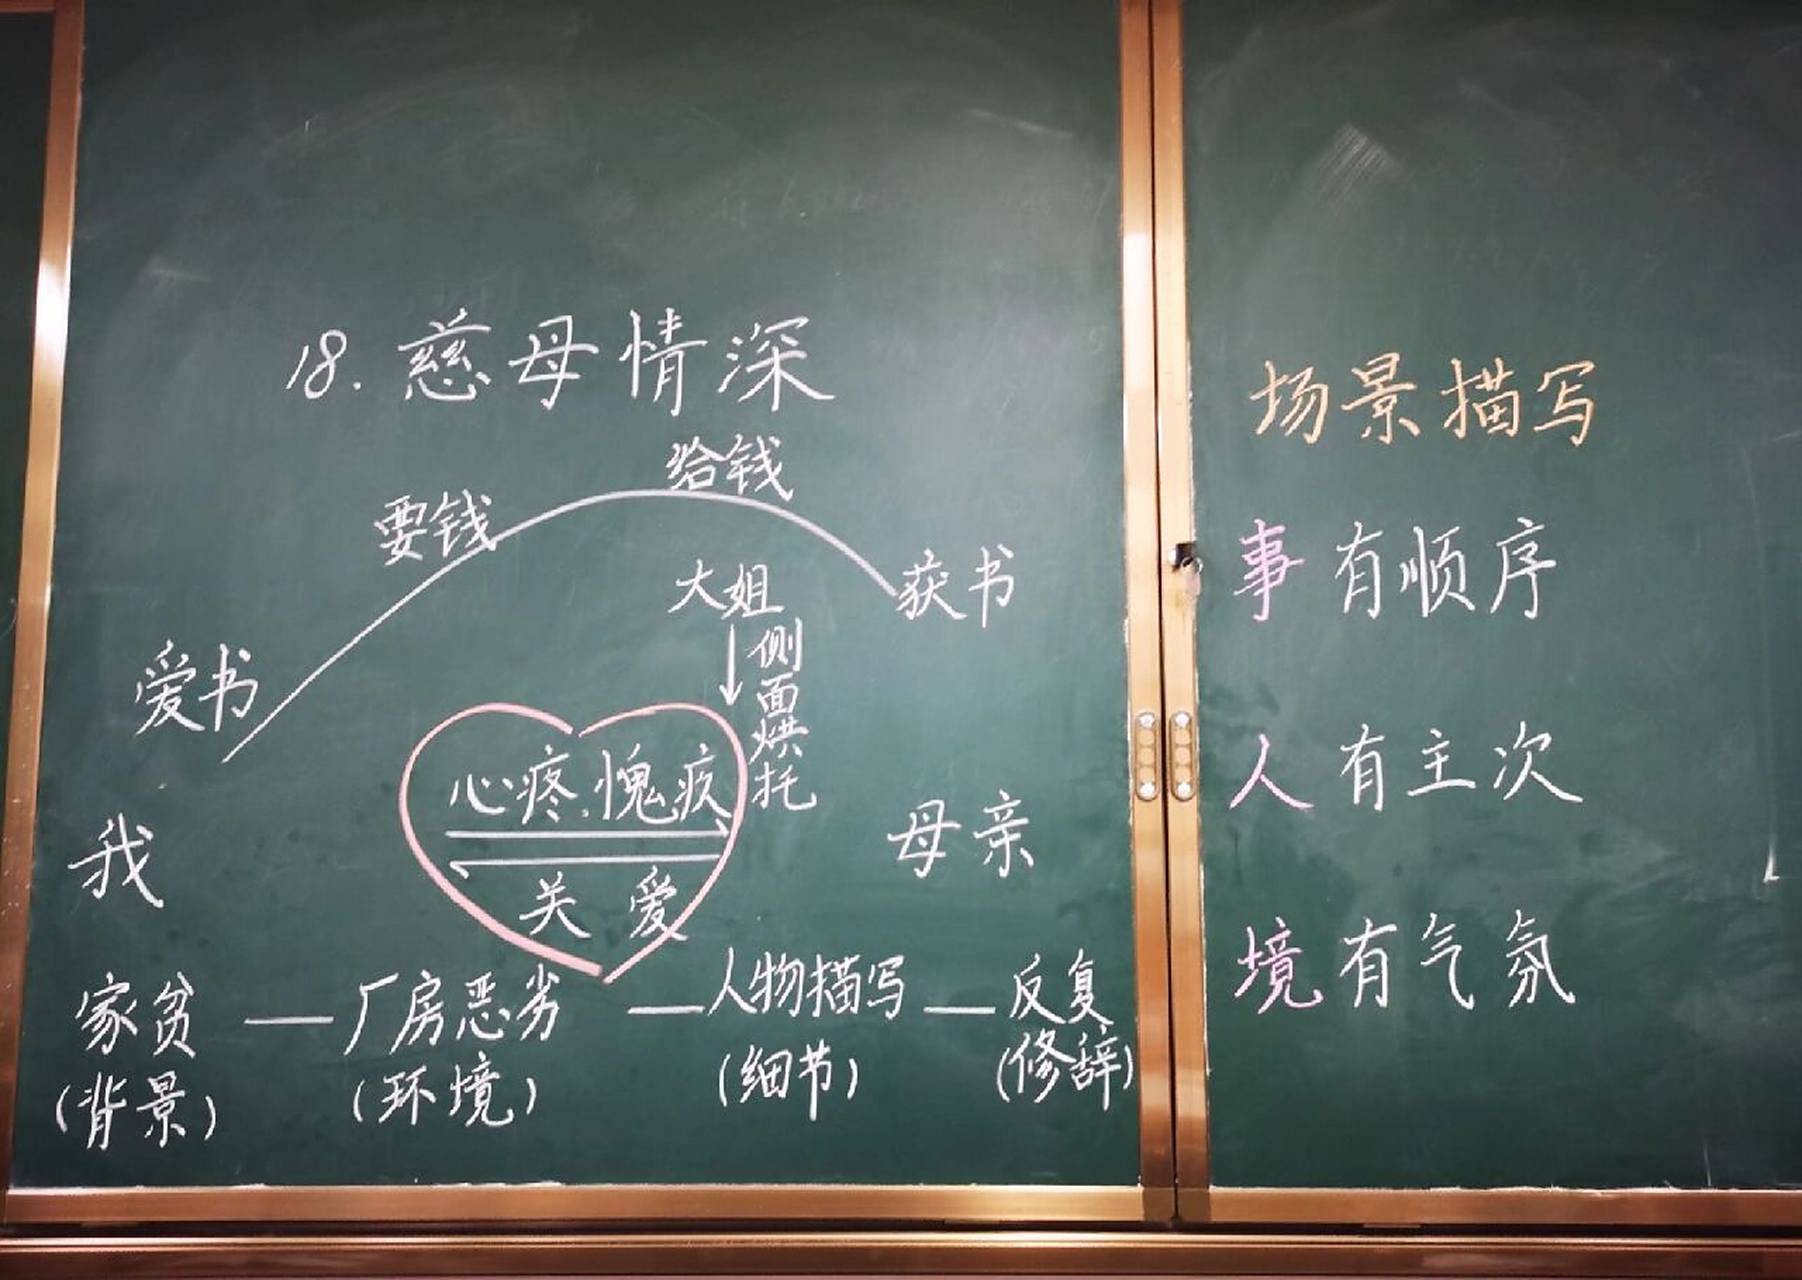 18. 慈母情深
给钱
要钱
大姐
获书
侧面烘托
爱书
心疼.愧疚
我
母亲
关爱
家贫 — 厂房恶劣 — 人物描写 — 反复
(背景) (环境) (细节) (修辞)
场景描写
事 有顺序
人 有主次
境 有气氛